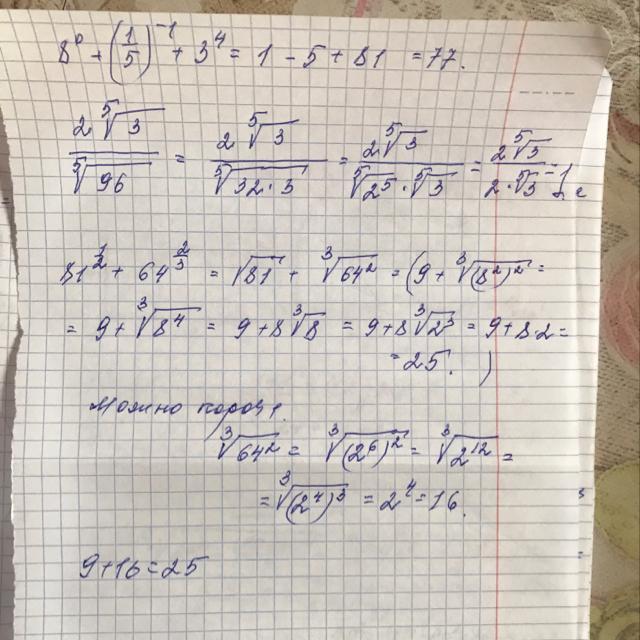 8⁰ - (1/5)⁻¹ + 3⁴ = 1 - 5 + 81 = 77.
2⁵√3 / ⁵√96 = 2⁵√3 / ⁵√(32·3) = 2⁵√3 / (⁵√2⁵ · ⁵√3) = 2⁵√3 / (2·⁵√3) = 1
81^(1/2) + 64^(2/3) = √81 + ³√64² = (9 + ³√(8²)² =
= 9 + ³√8⁴ = 9 + 8³√8 = 9 + 8³√2³ = 9 + 8·2 =
= 25. )
Можно короче
³√64² = ³√(2⁶)² = ³√2¹² =
= ³√(2⁴)³ = 2⁴ = 16.
9 + 16 = 25